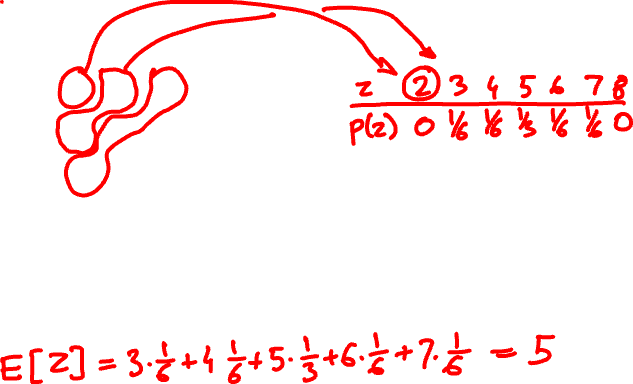 z 2 3 4 5 6 7 8
p(z) 0 1/6 1/6 1/3 1/6 1/6 0
E[Z] = 3·1/6+4 1/6+5·1/3+6·1/6+7·1/6 = 5